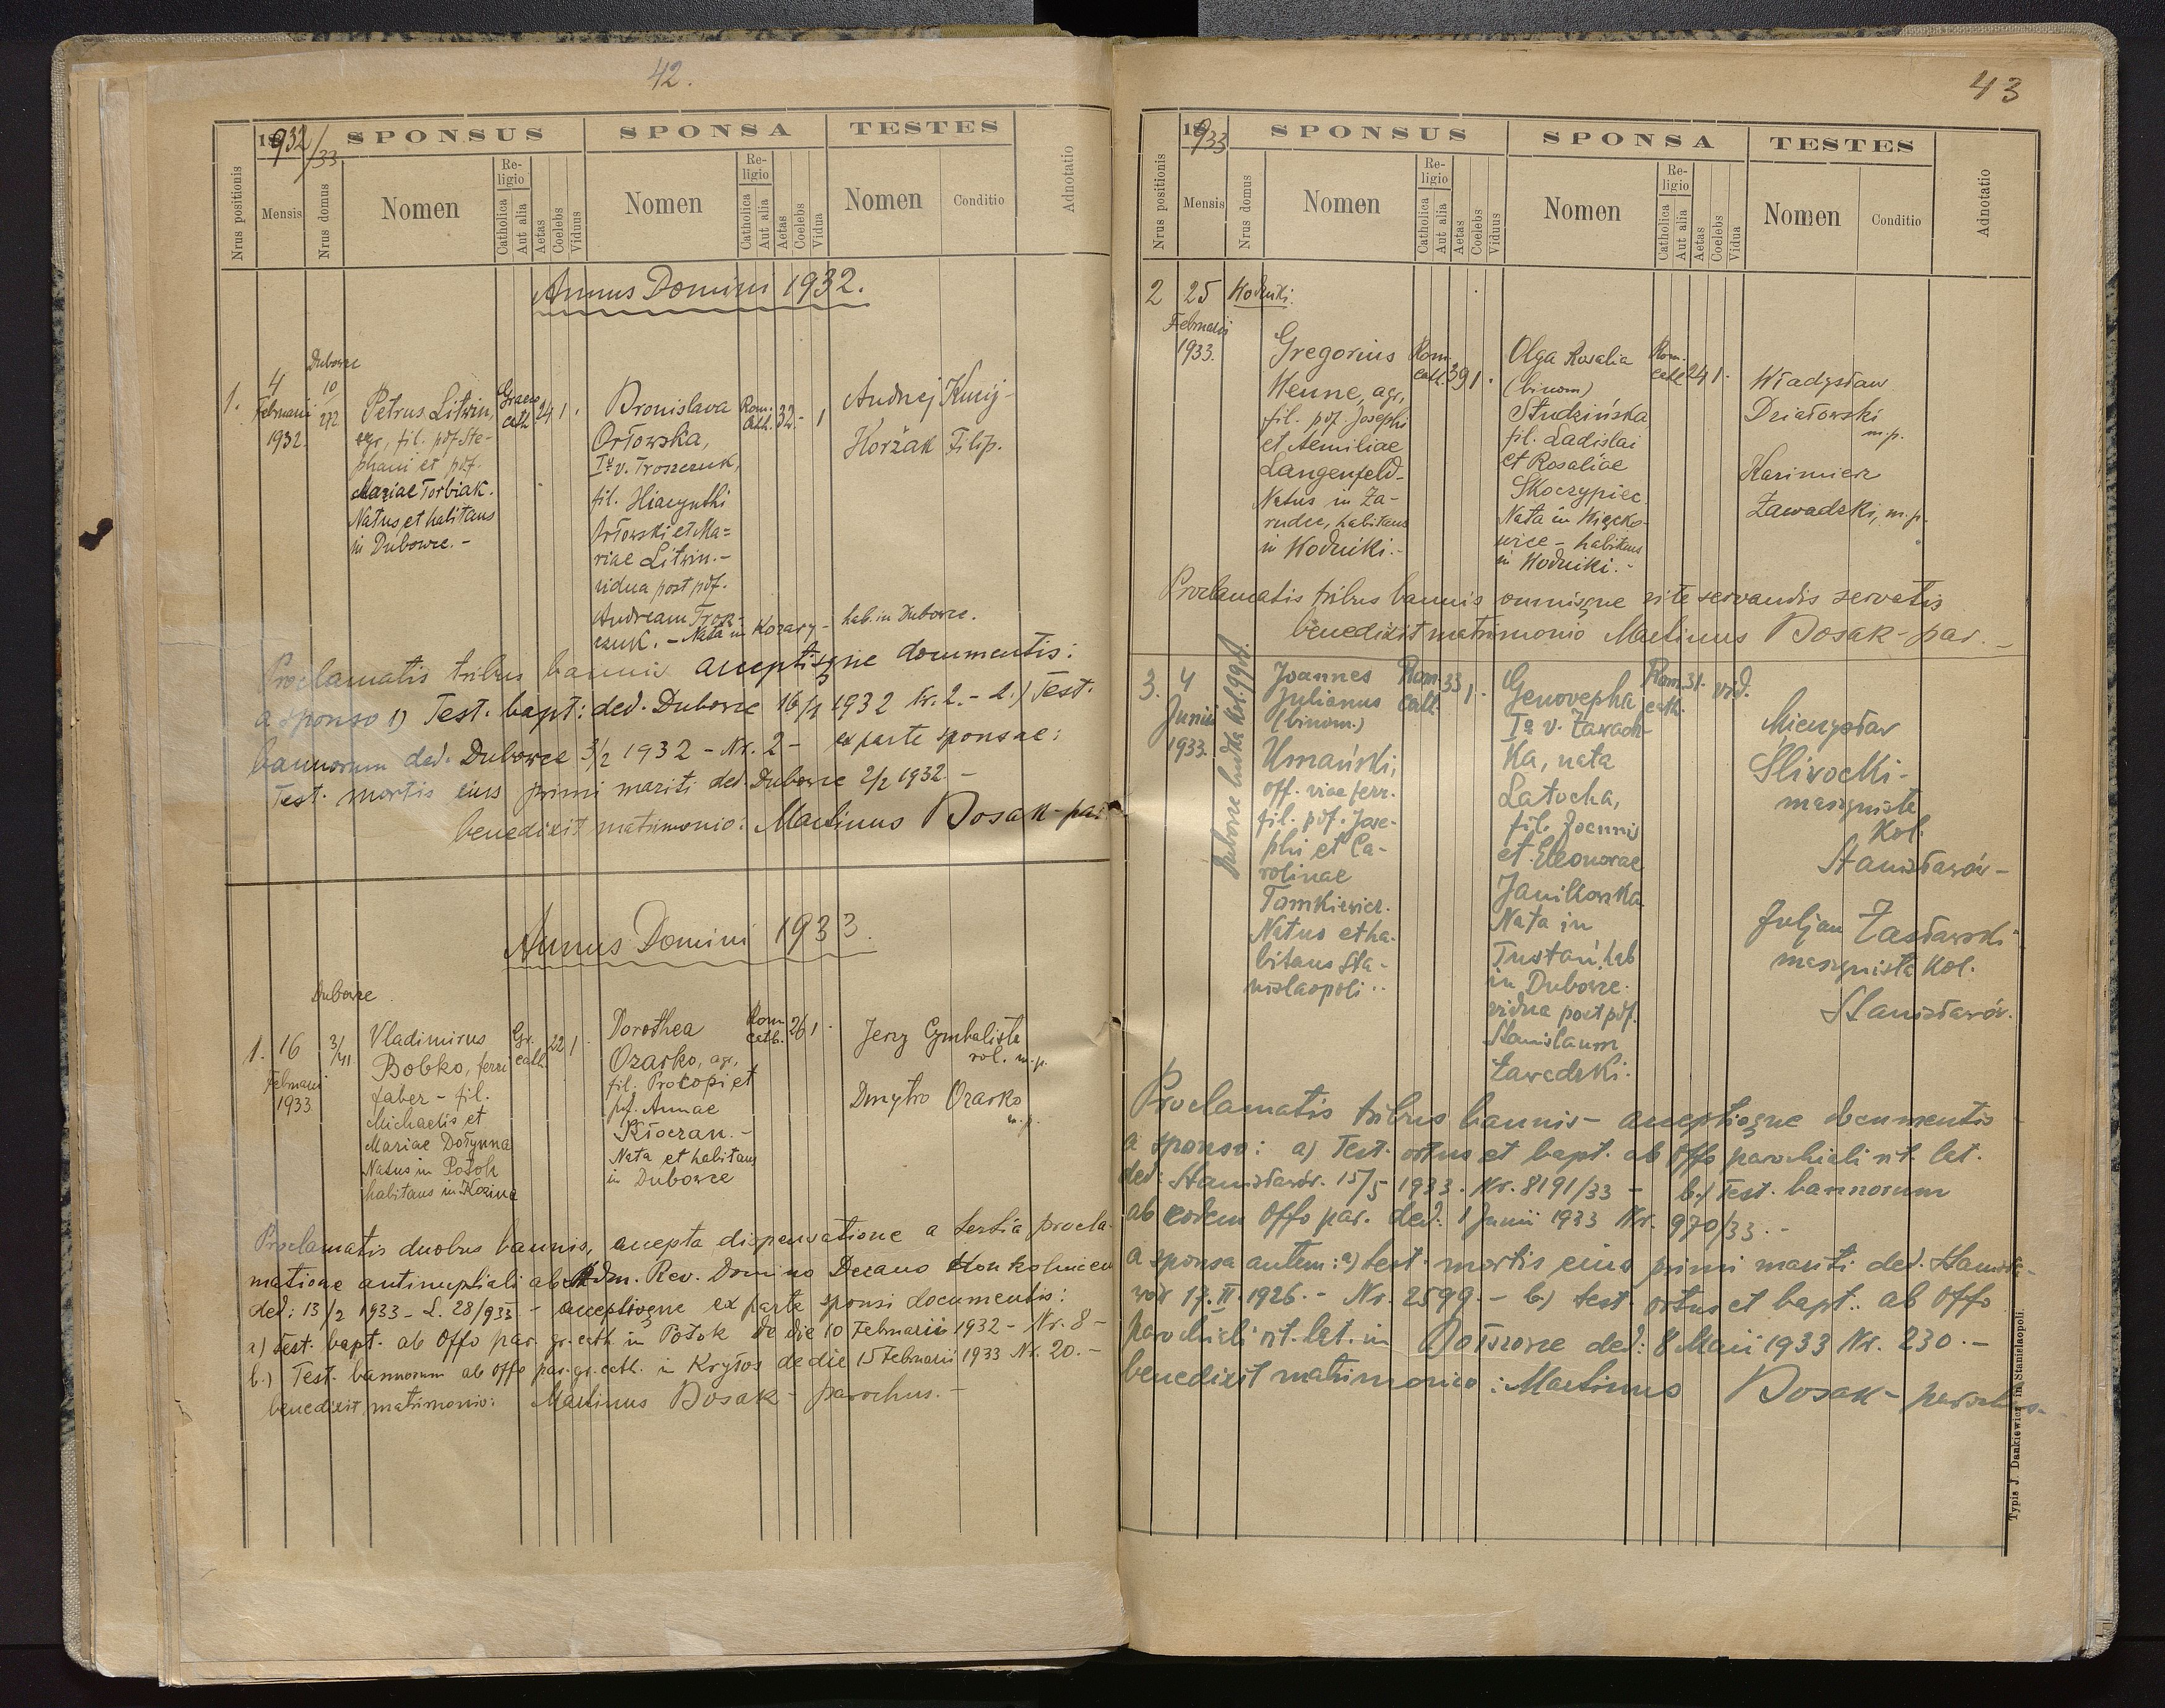 42.
1932/33
SPONSUS
SPONSA
TESTES
Nrus positionis
Mensis
Nrus domus
Nomen
Religio
Catholica
Aut alia
Aetas
Coelebs
Viduus
Nomen
Religio
Catholica
Aut alia
Aetas
Coelebs
Vidua
Nomen
Conditio
Adnotatio
Annus Domini 1932.
1.
4
Februarii
1932.
Dubowce
10
272
Petrus Litwin,
agr, fil. pdf. Ste-
phani et pdf.
Mariae Torbiak.
Natus et habitans
in Dubowce.-
Graeco
cath
24
1.
Bronislava
Orłowska,
Iº v. Troszczuk,
fil. Hiacynthi
Orłowski et Ma=
riae Litwin.-
vidua post pdf.
Andream Trosz-
czuk. - Nata in Kozary - hab. in Dubowce.
Rom.
Cath.
32
-
1
Andrej Kurij-
Horżak Filip.
Proclamatis tribus bannis acceptisque documentis:
a sponso 1) Test. bapt: ded. Dubowce 16/1 1932 Nr. 2.- 2.) Test.
bannorum ded. Dubowce 3/2 1932 - Nr. 2 - ex parte sponsae:
Test. mortis eius primi mariti ded. Dubowce 2/2 1932.-
benedixit matrimonio: Martinus Bosak - par.
Annus Domini 1933.
Dubowce.
1.
16
Februarii
1933
3/41
Vladimirus
Bobko, ferri
faber - fil.
Michaelis et
Mariae Dołynna
Natus in Potok
habitans in Kozina
Gr.
cath.
22
1.
Dorothea
Ozarko, agr,
fil. Procopi et
pdf. Annae
Kłoczan.-
Nata et habitans
in Dubowce
Rom
cath.
26
1.
Jerzy Cymbalista
rol. m.p.
Dmytro Ozarko
m.p.
Proclamatis duobus bannis, accepta dispensatione a tertia procla-
matione antinuptiali ab Adm. Rev. Domino Decano
ded: 13/2 1933 - L. 28/933 - acceptisque ex parte sponsi documentis:
a) test. bapt. ab Offo par. gr. cath. in Potok de die 10 Februarii 1932 - Nr. 8 -
b.) Test. bannorum ab Offo par. gr. cath. in Kryłos de die 15 Februarii 1933 Nr. 20.-
benedixit matrimonio: Martinus Bosak - parochus.-
43
1933
SPONSUS
SPONSA
TESTES
Nrus positionis
Mensis
Nrus domus
Nomen
Religio
Catholica
Aut alia
Aetas
Coelebs
Viduus
Nomen
Religio
Catholica
Aut alia
Aetas
Coelebs
Vidua
Nomen
Conditio
Adnotatio
2
25
Februarii
1933.
Wodniki.
Gregorius
Henne, agr,
fil. pdf. Josephi
et Aemiliae
Langenfeld-
Natus in Za-
rudce, habitans
in Wodniki.-
Rom.
cath.
39
1.
Olga Rosalia
(binom)
Studzińska
fil. Ladislai
et Rosaliae
Skoczypiec.
Nata in Więcko-
wice - habitans
in Wodniki.-
Rom.
cath.
24
1.
Władysław
Działowski
m.p.
Kazimierz
Zawadzki, m.p.
Proclamatis tribus bannis omnisque rite servandis servatis
benedixit matrimonio Martinus Bosak - par.
3.
4
Junii
1933.
Dubowce budka kol.
Joannes
Julianus
(binom.)
Umański,
off. viae ferr.
fil. pdf. Jose-
phi et Ca-
rolinae
Tomkiewicz.
Natus et ha-
bitans Sta-
nislaopoli..
Rom.
cath
33
1.
Genovepha
Iº v. Zawadz-
ka, nata
Latocha,
fil. Joannis
et Eleonorae
Janikowska
Nata in
Trustań, hab
in Dubowce.
vidua post pdf.
Stanislaum
Zawadzki.
Rom.
cath.
31.
vid.
Mieczysław
Śliwocki -
maszynista
kol.
Stanisławów -
Juljan Zasławski
maszynista kol.
Stanisławów.
Proclamatis tribus bannis - acceptisque documentis
a sponso: a) Test. ortus et bapt. ab Offo parochiali rit. lat.
ded: Stanisławów. 15/5 1933. Nr. 8191/33 - b.) Test. bannorum
ab eodem Offo par. ded. 1 Junii 1933 Nr. 970/33.-
a sponsa autem: a) test. mortis eius primi mariti ded. Stanisła-
wów 17.II.1926.- Nr. 2599.- b) test. ortus et bapt. ab Offo
parochiali rit. lat. in Bołszowce ded: 8 Maii 1933 Nr. 230.-
benedixit matrimonio: Martinus Bosak - parochus-
Typis J. Dankiewicz in Stanislaopoli.